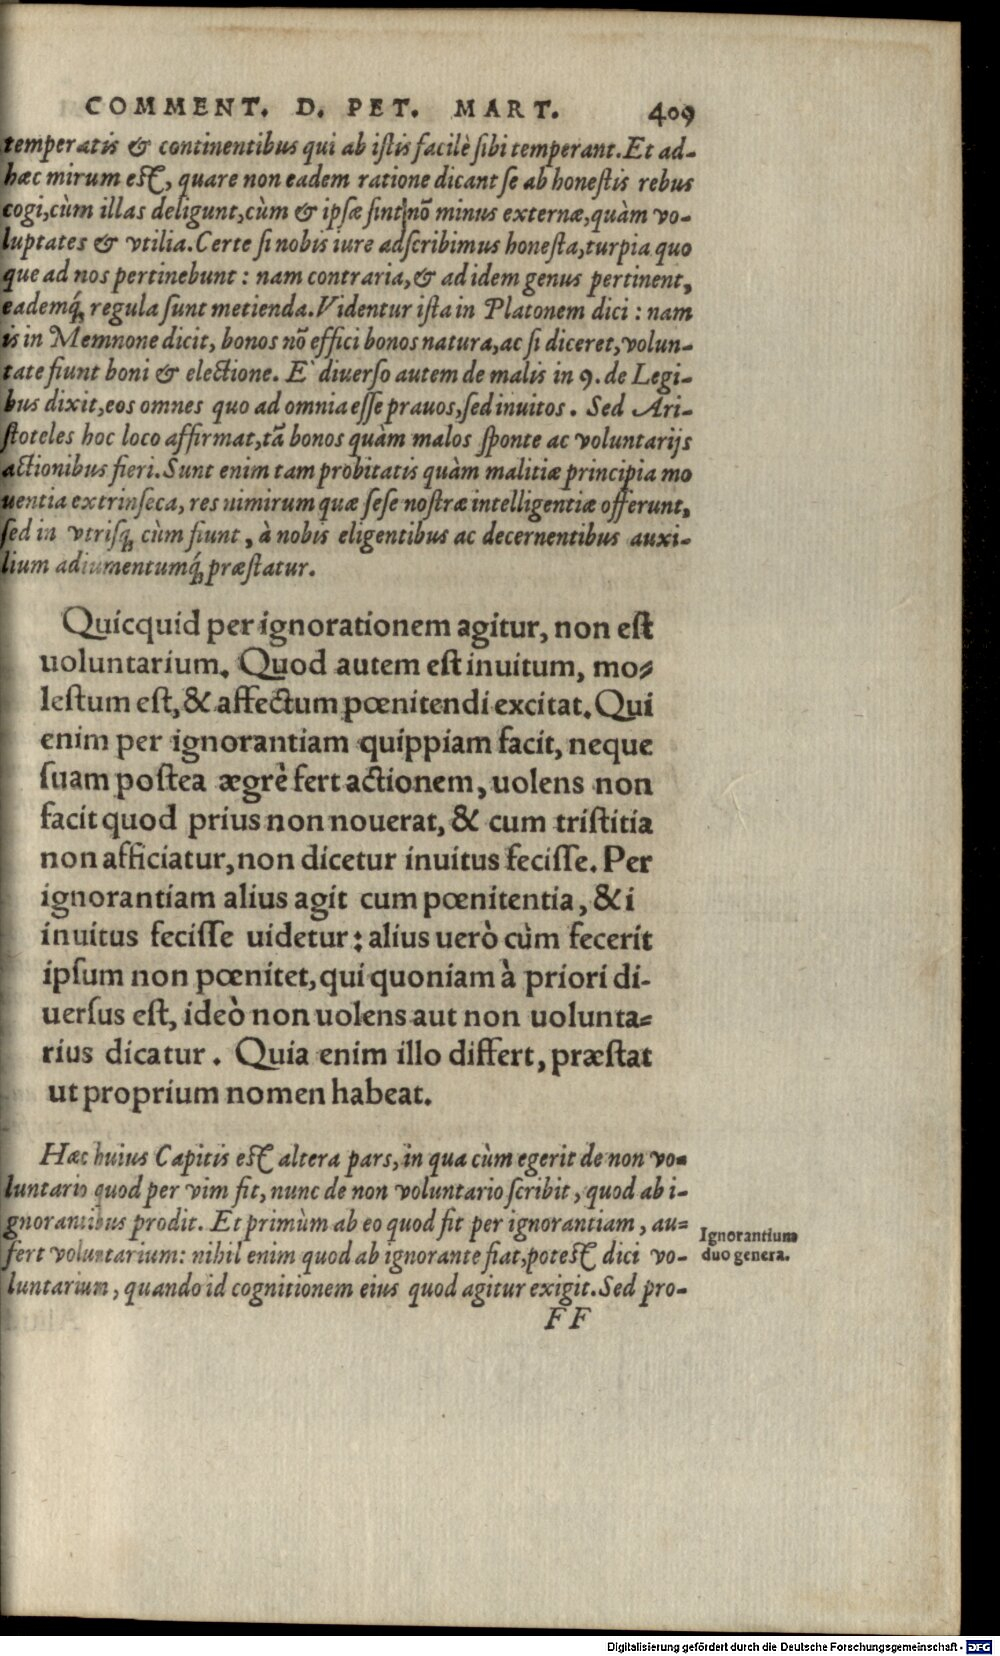 COMMENT. D. PET. MART. 409
temperatis & continentibus qui ab istis facilè sibi temperant. Et ad-
hæc mirum est, quare non eadem ratione dicant se ab honestis rebus
cogi, cùm illas deligunt, cùm & ipsæ sint nõ minus externæ, quàm vo-
luptates & vtilia. Certe si nobis iure adscribimus honesta, turpia quo
que ad nos pertinebunt : nam contraria, & ad idem genus pertinent,
eademq́; regula sunt metienda. Videntur ista in Platonem dici : nam
is in Memnone dicit, bonos nõ effici bonos natura, ac si diceret, volun-
tate fiunt boni & electione. E` diuerso autem de malis in 9. de Legi-
bus dixit, eos omnes quo ad omnia esse prauos, sed inuitos. Sed Ari-
stoteles hoc loco affirmat, tã bonos quàm malos sponte ac voluntarijs
actionibus fieri. Sunt enim tam probitatis quàm malitiæ principia mo
uentia extrinseca, res nimirum quæ sese nostræ intelligentiæ offerunt,
sed in vtrisq; cùm fiunt, à nobis eligentibus ac decernentibus auxi-
lium adiumentumq́; præstatur.
Quicquid per ignorationem agitur, non est
uoluntarium. Quod autem est inuitum, mo-
lestum est, & affectum pœnitendi excitat. Qui
enim per ignorantiam quippiam facit, neque
suam postea ægrè fert actionem, uolens non
facit quod prius non nouerat, & cum tristitia
non afficiatur, non dicetur inuitus fecisse. Per
ignorantiam alius agit cum pœnitentia, & i
inuitus fecisse uidetur: alius uerò cùm fecerit
ipsum non pœnitet, qui quoniam à priori di-
uersus est, ideò non uolens aut non uolunta-
rius dicatur. Quia enim illo differt, præstat
ut proprium nomen habeat.
Hæc huius Capitis est altera pars, in qua cùm egerit de non vo-
luntario quod per vim fit, nunc de non voluntario scribit, quod ab i-
gnorantibus prodit. Et primùm ab eo quod fit per ignorantiam, au-
fert voluntarium: nihil enim quod ab ignorante fiat, potest dici vo-
luntarium, quando id cognitionem eius quod agitur exigit. Sed pro-
Ignorantium
duo genera.
FF
Digitalisierung gefördert durch die Deutsche Forschungsgemeinschaft - DFG